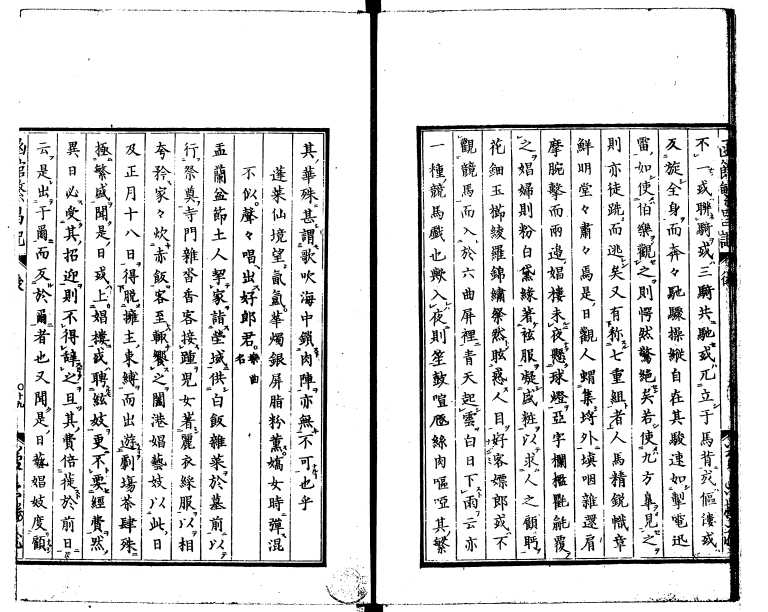 不一或聯騎或三騎共馳或兀立于馬背或傴僂或
反旋全身而奔々馳驟操縱自在其駿速如掣電迅
雷如使伯樂觀之則愕然驚絕矣若使九方皐見之
則亦徒跣而逃矣又有称七重組者人馬精銳幟章
鮮明堂々肅々焉是日觀人蝟集埒外塡咽雜還肩
摩腕擊而兩邉娼樓未夜懸球燈亞字欄檻氍毹覆
之娼婦則粉白黛綠著袨服凝盛粧以求人之顧眄
花鈿玉櫛綾羅錦繡粲然眩惑人目好客嫖郎或不
觀競馬而入於六曲屏裡青天起雲白日下雨云亦
一種競馬戲也歟入夜則笙鼓喧囂絲肉嘔啞其繁
其華殊甚謂歌吹海中鎖肉陣亦無不可也乎
蓬萊仙境望氤氳華燭銀屏脂粉薰嬌女時彈混
不似聲々唱出好郎君樂曲名
盂蘭盆節土人挈家詣塋域供白飯雜菜於墓前以
行祭奠寺門雜沓香客接踵兒女著麗衣綵服以相
夸矜家々炊赤飯客至輙饗之闔港娼藝妓以此日
及正月十八日得脫擁主束縛而出遊劇塲茶肆殊
極繁盛聞是日或上娼樓或聘妓更不要經費然
異日必受其招迎則不得辭之且其費倍蓰於前日
云是出于爾而反於爾者也又聞是日藝娼妓度顧